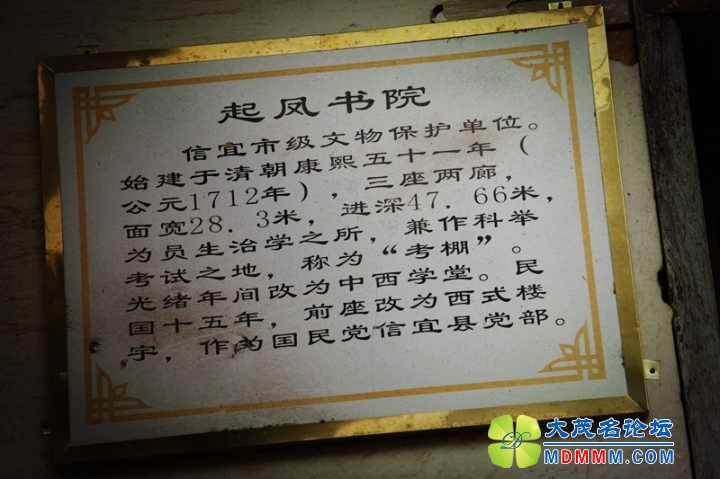 起凤书院
信宜市级文物保护单位。
始建于清朝康熙五十一年（
公元1712年），三座两廊，
面宽28.3米，进深47.66米，
为员生治学之所，兼作科举
考试之地，称为“考棚”。
光绪年间改为中西学堂。民
国十五年，前座改为西式楼
宇，作为国民党信宜县党部。
大茂名论坛
MDMMM.COM